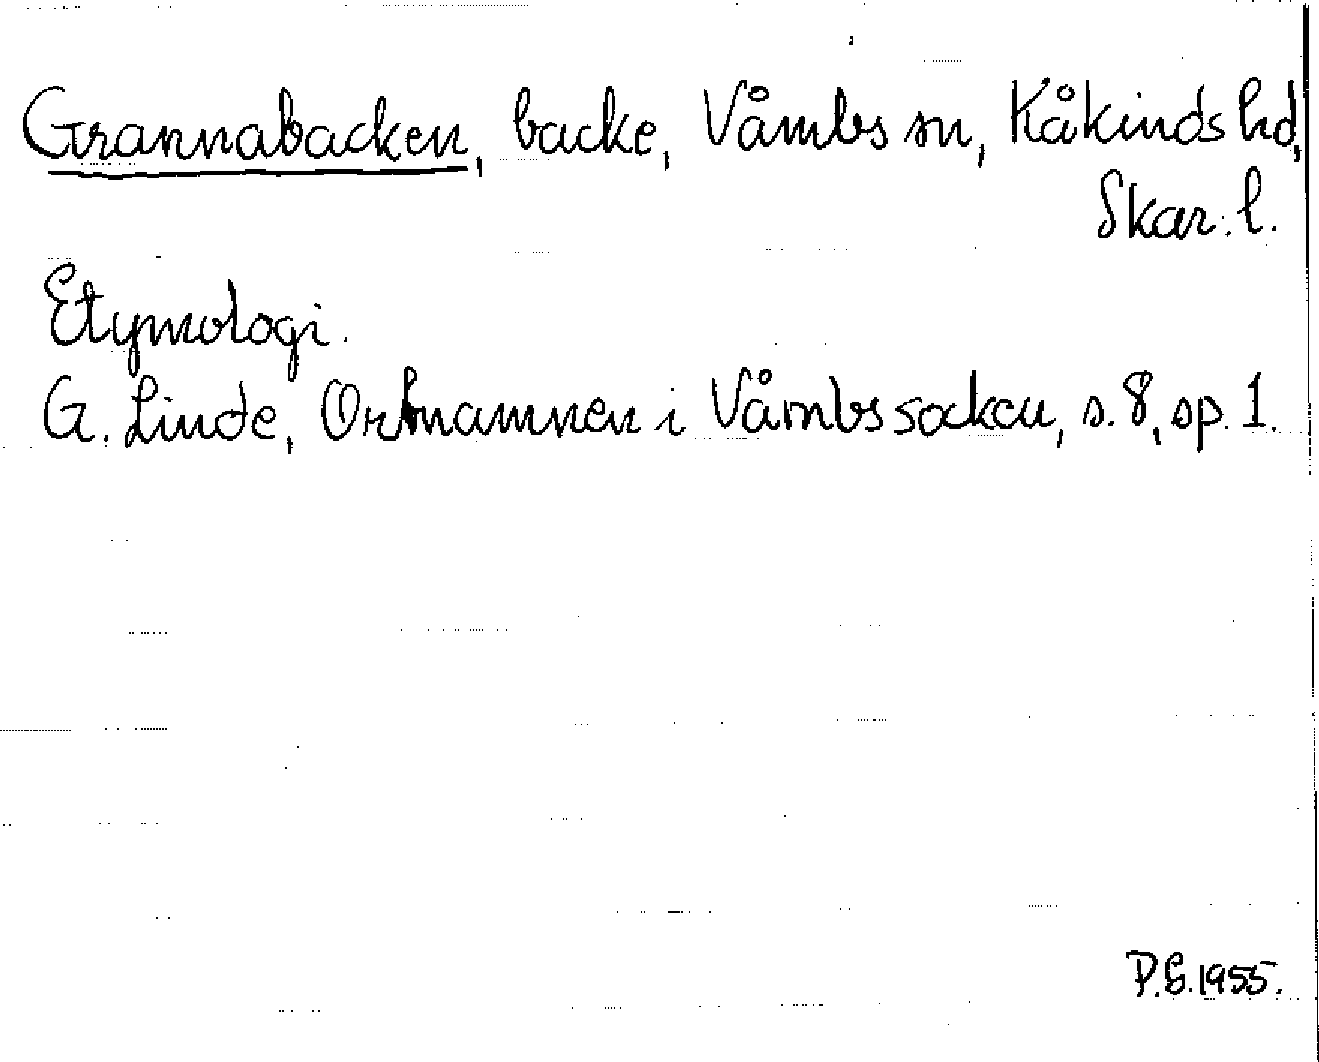 Grannabacken, backe, Våmbs sn, Kåkinds hd,
Skar. l.
Etymologi.
G. Linde, Ortnamnen i Våmbs socken, s. 8, sp. 1.
P.G. 1955.